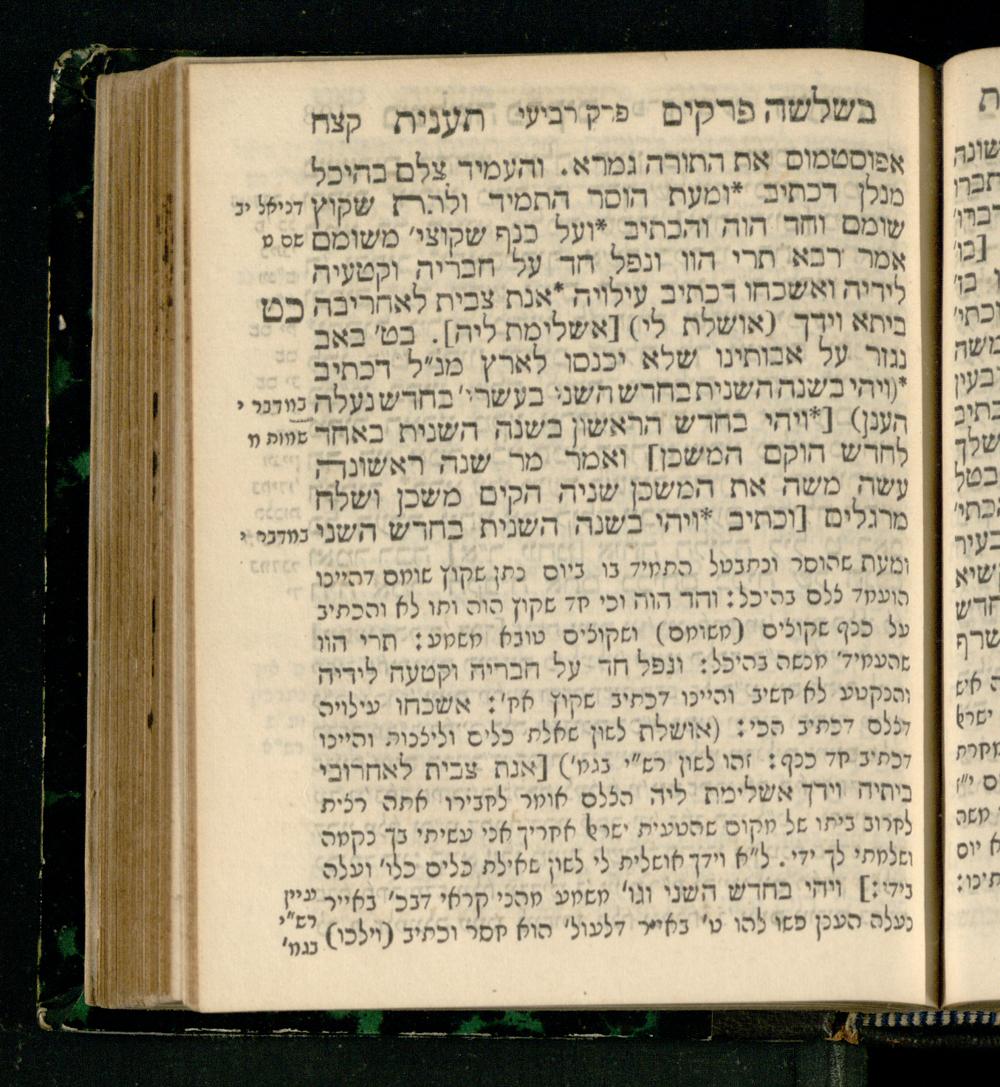 בשלשה פרקים פרק רביעי תענית קצח
אפוסטמוס את התורה גמרא. והעמיד צלם בהיכל
מנלן דכתיב *ומעת הוסר התמיד ולתת שקוץ
דניאל יב
שומם וחד הוה והכתיב *ועל כנף שקוצי׳ משומם
שם ט
אמר רבא תרי הוו ונפל חד על חבריה וקטעיה
לידיה ואשכחו דכתיב עילויה *אנת צבית לאחריבה
כט
ביתא וידך (אושלת לי) [אשלימת ליה]. בט׳ באב
נגזר על אבותינו שלא יכנסו לארץ מנ״ל דכתיב
*(ויהי בשנה השנית בחדש השני בעשרי׳ בחדש נעלה
במדבר י
הענן) [*ויהי בחדש הראשון בשנה השנית באחד
שמות מ
לחדש הוקם המשכן] ואמר מר שנה ראשונה
עשה משה את המשכן שניה הקים משכן ושלח
מרגלים [וכתיב *ויהי בשנה השנית בחדש השני
במדבר י
ומעת שהוסר ונתבטל התמיד בו ביום נתן שקוץ שומם דהיינו
הועמד צלם בהיכל: וחד הוה וכי חד שקוץ הוה ותו לא והכתיב
על כנף שקוצים (משומם) ושקוצים טובא משמע: תרי הוו
שהעמיד׳ מנשה בהיכל: ונפל חד על חבריה וקטעה לידיה
והנקטע לא חשיב והיינו דכתיב שקוץ אח׳: אשכחו עילויה
דצלם דכתיב הכי: (אושלת לשון שאלת כלים וליצנות והיינו
דכתיב חד ככף: זהו לשון רש״י בגמ׳) [אנת צבית לאחרובי
ביתיה וידך אשלימת ליה הצלם אומר לחבירו אתה רצית
לחרוב ביתו של מקום שהטעית ישראל אחריך אני עשיתי בך נקמה
ושלמתי לך ידי. ל״א וידך אושלית לי לשון שאילת כלים כלו׳ ועלה
בידי:] ויהי בחדש השני וגו׳ משמע מהני קראי דבכ׳ באייר
נעלה הענן פשו להו ט׳ באייר דלעול׳ הוא חסר וכתיב (וילכו)
עיין
רש״י
בגמ׳